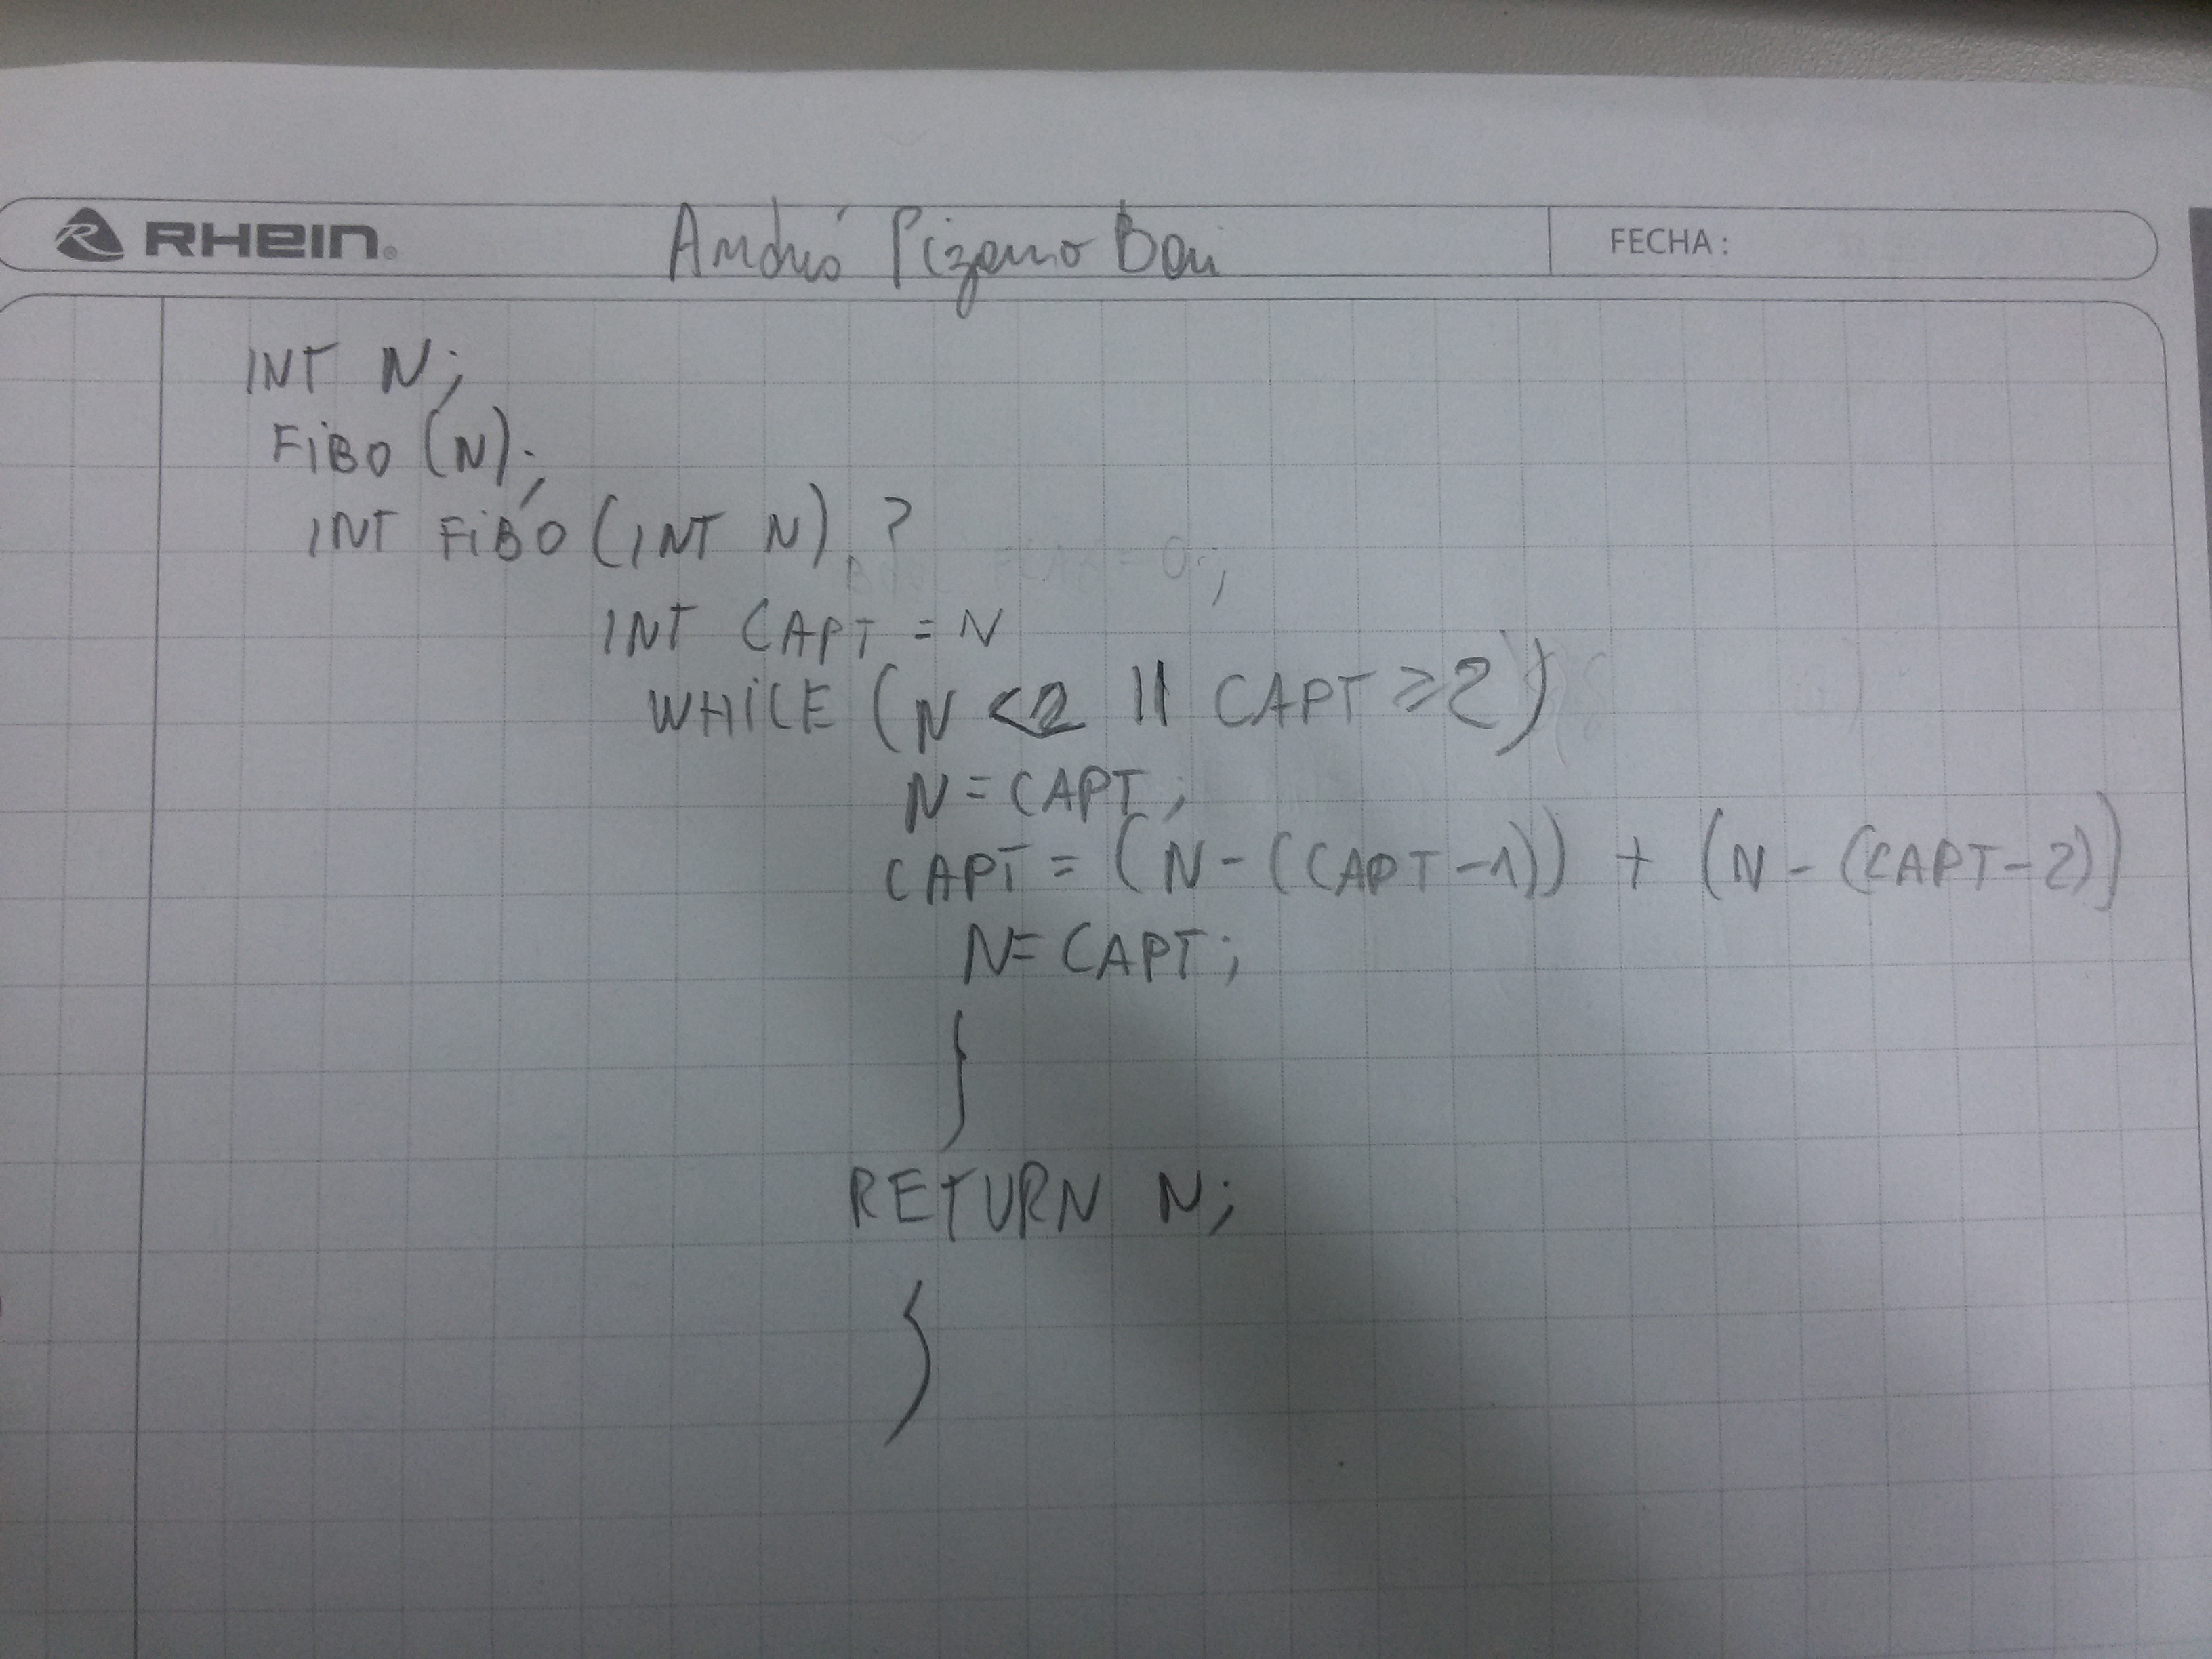 RHEIN
Pizarro FECHA:
INT N;
FIBO (N);
INT FIBO (INT N) ?
INT CAPT = N
WHILE (N <2 || CAPT ≥2)
N = CAPT;
CAPT = (N - (CAPT -1)) + (N - (CAPT-2))
N= CAPT;
}
RETURN N;
}